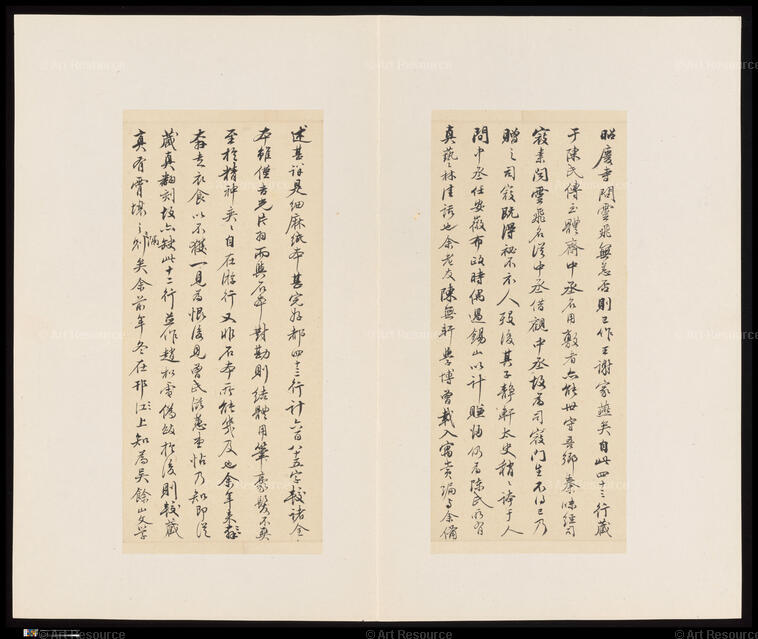 昭慶寺閱靈飛無恙否則已作王謝家燕矣自此四十三行藏
于陳氏傳至體齋中丞名用敷者亦能世守吾鄉秦味經司
寇素閱靈飛名從中丞借觀中丞故為司寇門生不得已乃
贈之司寇既得秘不示人歿後其子靜軒太史稍〻誇于人
間中丞任安徽布政時偶過錫山以計賺歸仍為陳氏所有
真藝林佳話也余老友陳無軒學博曾載入寓賞編与余備
述甚詳見細麻紙本甚完好都四十三行計六百八十五字較諸全
本雖僅吉光片羽而與石本對勘則結體用筆毫髮不爽
至於精神奕〻自在游行又非石本所能幾及也余年來
奔走衣食以不獲一見為恨後見曾氏滋蕙堂帖乃知即從
藏真翻刻故亦缺此十二行並作趙松雪偽跋於後則較藏
真有霄壤之隔矣余前年冬在邗江上知為吳餘山文學
© Art Resource